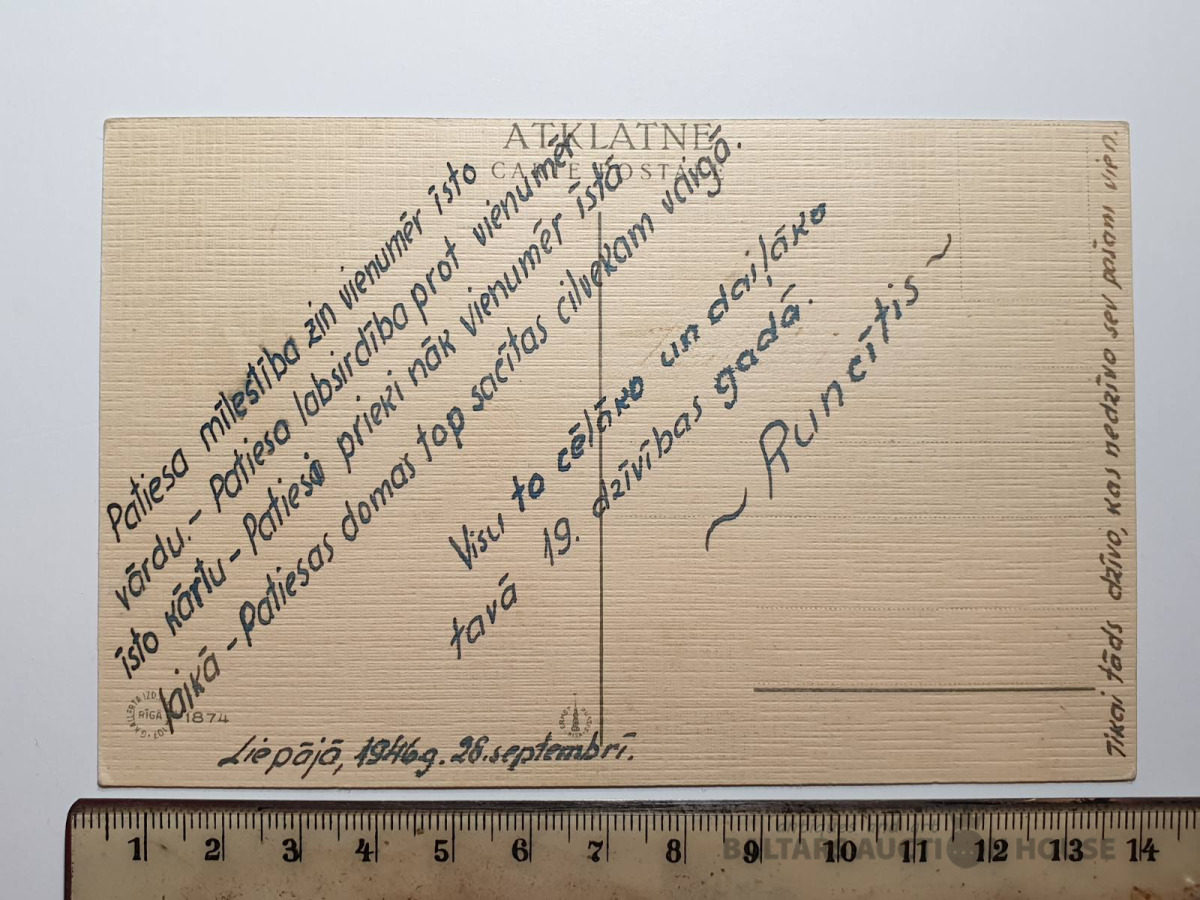 ATKLATNE
CARTE POSTALE
Patiesa mīlestība zin vienumēr īsto
vārdu. – Patiesa labsirdība prot vienumēr
īsto kārtu – Patiesa prieki nāk vienumēr īstā
laikā – Patiesas domas top sacītas cilvekam vārgā.
Visu to cēļāko un daiļāko
tavā 19. dzīvības gadā.
~ Runcītis ~
Liepājā, 1946.g. 28. septembrī.
Tikai tāds dzīvo, kas nedzīvo sev pašam vien.
RĪGĀ
1874
1 2 3 4 5 6 7 8 9 10 11 12 13 14
antiques and art
BALTARS AUCTION HOUSE